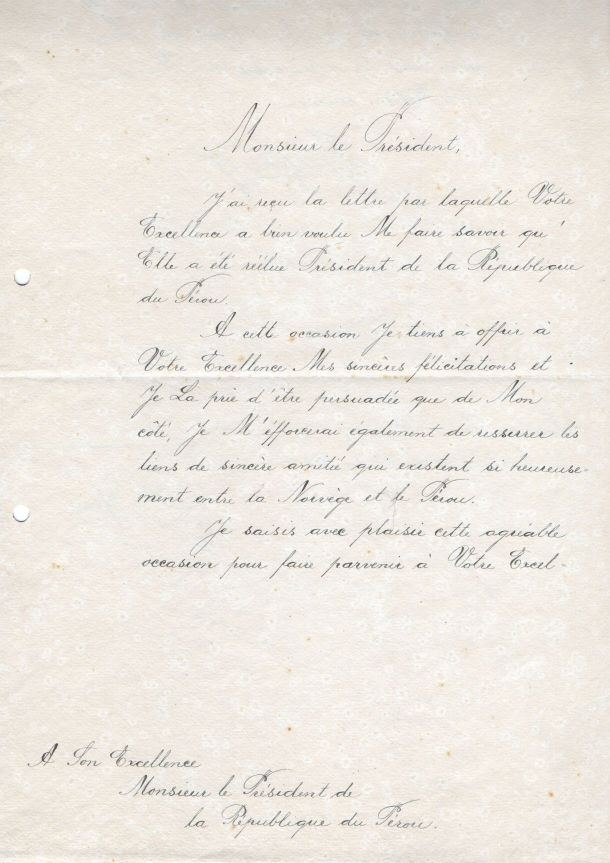 Monsieur le Président,
J'ai reçu la lettre par laquelle Votre
Excellence a bien voulu Me faire savoir qu'
Elle a été réélue Président de la République
du Pérou.
A cette occasion Je tiens à offrir à
Votre Excellence Mes sincères félicitations et
Je La prie d'être persuadée que de Mon
côté, Je M'éfforcerai egalement de resserrer les
liens de sincère amitié qui existent si heureuse-
ment entre la Norvège et le Pérou.
Je saisis avec plaisir cette agréable
occasion pour faire parvenir à Votre Excel-
A Son Excellence
Monsieur le Président de
la République du Pérou.